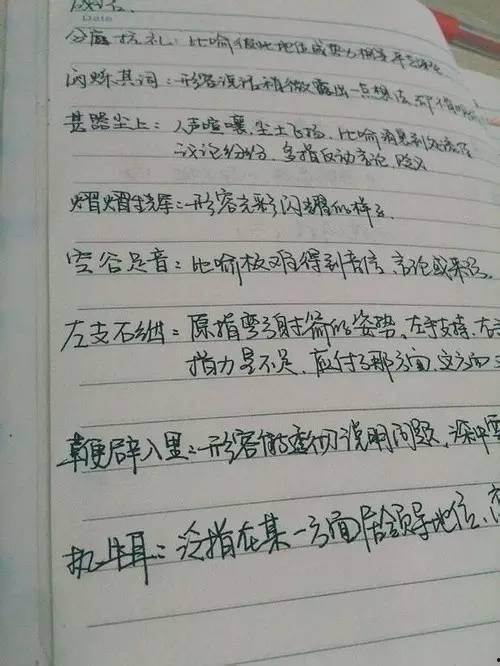 成语.
Date
分庭抗礼:比喻彼此地位或势力相等平起平坐
闪烁其词:形容说话稍微露出一点想法,却不肯
甚嚣尘上:人声喧嚷,尘土飞扬.比喻消息到处流传
议论纷纷.多指反动言论.贬义
熠熠生辉:形容光彩闪耀的样子.
空谷足音:比喻极难得到音信、言论或来访.
左支右绌:原指弯弓射箭的姿势,左手支持,右手
指力量不足,应付了那方面,这方面
鞭辟入里:形容能透彻说明问题,深中要
执牛耳:泛指在某一方面居领导地位.